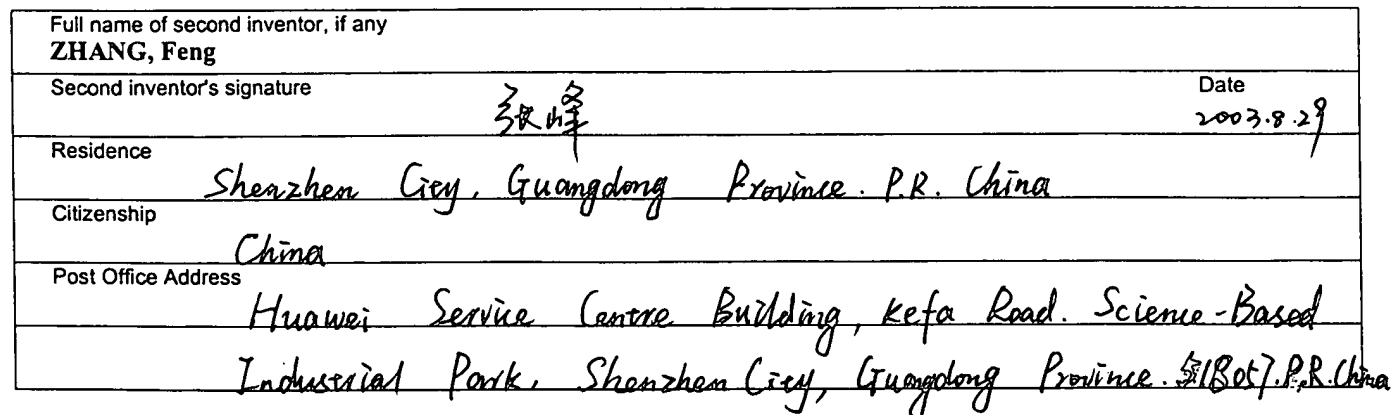 Full name of second inventor, if any
ZHANG, Feng
Second inventor's signature
Date
张峰
2003.8.29
Residence
Shenzhen City, Guangdong Province. P.R. China
Citizenship
China
Post Office Address
Huawei Service Centre Building, Kefa Road. Science-Based
Industrial Park, Shenzhen City, Guangdong Province. 518057. P.R. China